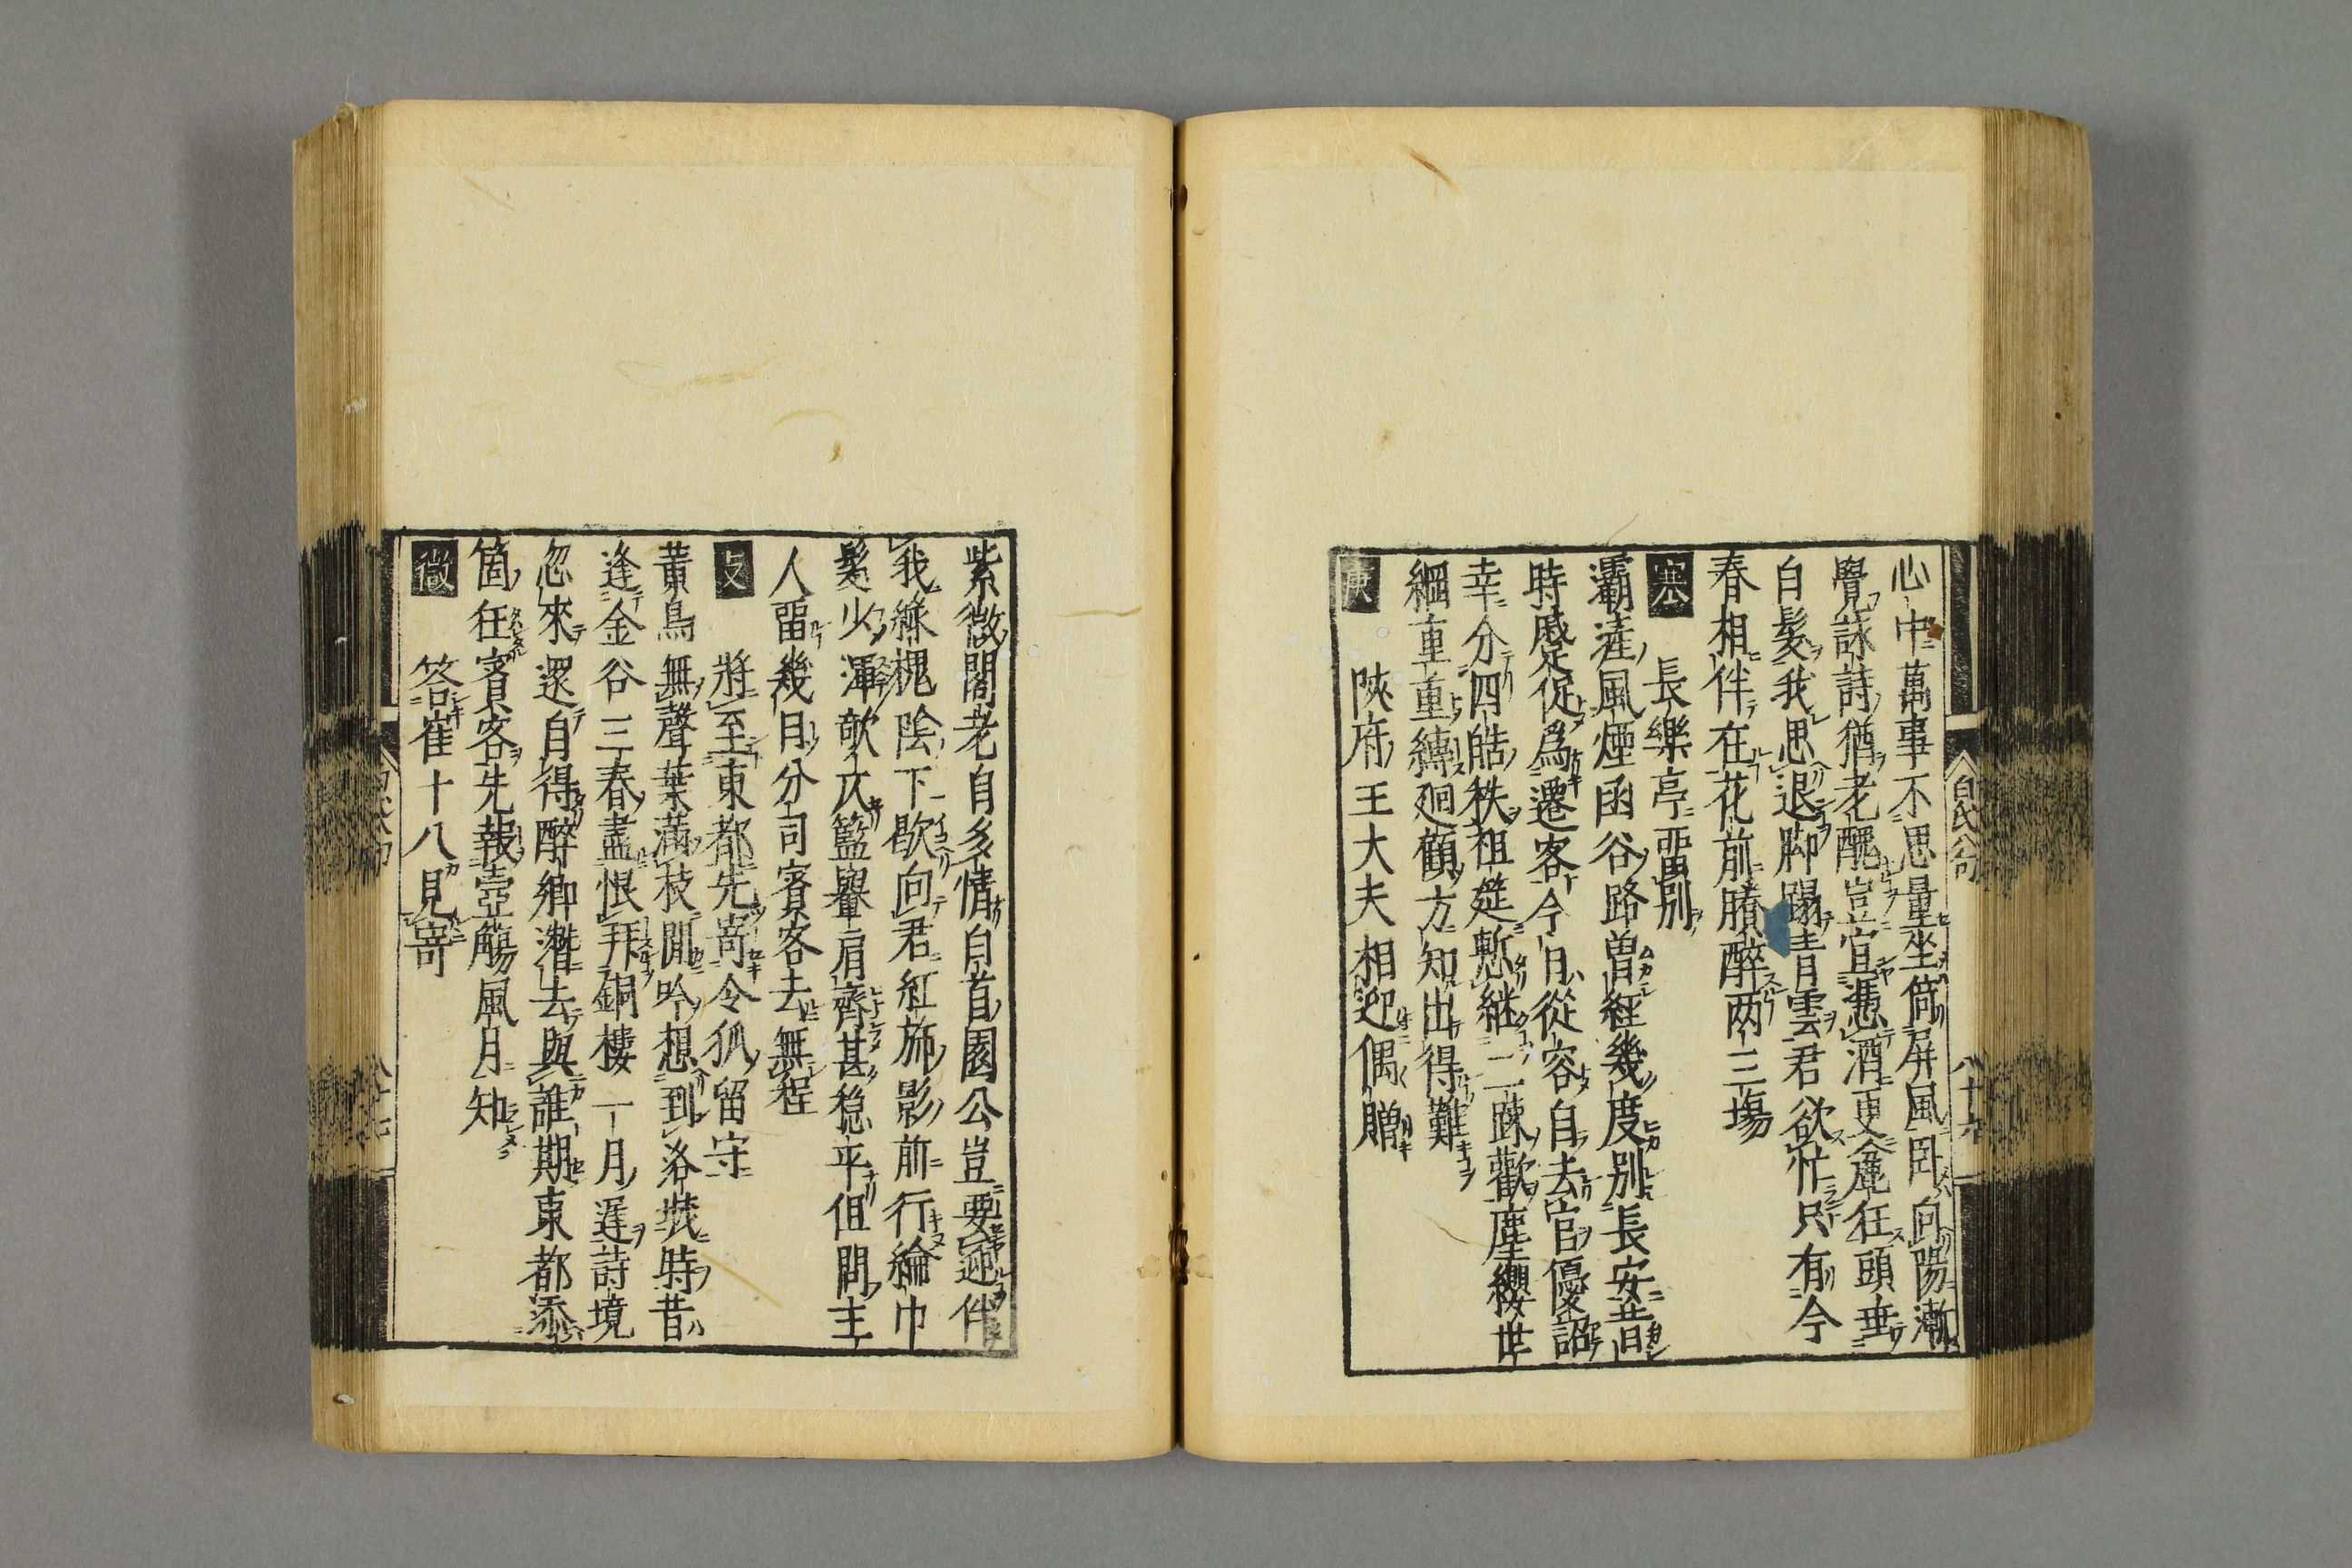 白氏分 八十六
心中萬事不思量坐倚屏風卧向陽漸
覺詠詩猶老醜豈宜憑酒更麁狂頭垂
白髮我思退脚蹋青雲君欲忙只有今
春相伴在花前賸醉两三塲
寒 長樂亭畱別
灞滻風煙函谷路曽経幾度別長安昔
時蹙促爲遷客今日從容自去官優詔
幸分四皓秩祖筵慙継二疎歡塵纓世
綱重重縛廻顧方知出得難
庚 陝府王大夫相迎偶贈
紫微閣老自多情白首園公豈要迎伴
我緑槐陰下歇向君紅斾影前行綸巾
髮少渾欹仄籃轝肩齊甚穏平但問主
人畱幾日分司賓客去無程
支 將至東都先寄令狐留守
黄鳥無聲葉滿枝閒吟想到洛城時昔
逢金谷三春盡恨拜銅樓一月遲詩境
忽來還自得醉郷潜去與誰期東都添
箇狂賓客先報壺觴風月知
微 答崔十八見寄